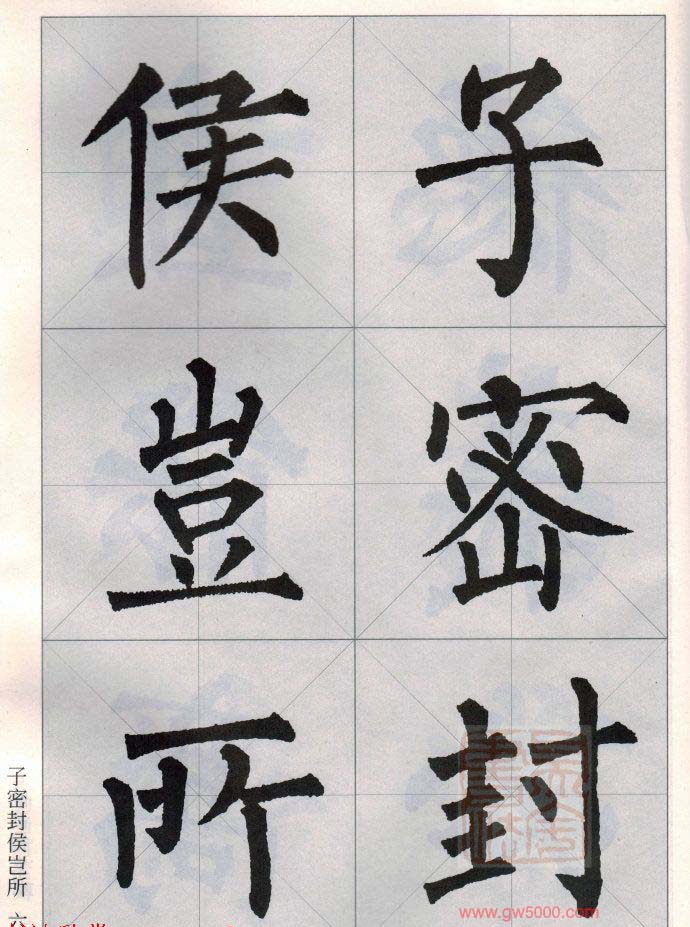 子密封
侯豈所
子密封侯岂所 六
www.gw5000.com